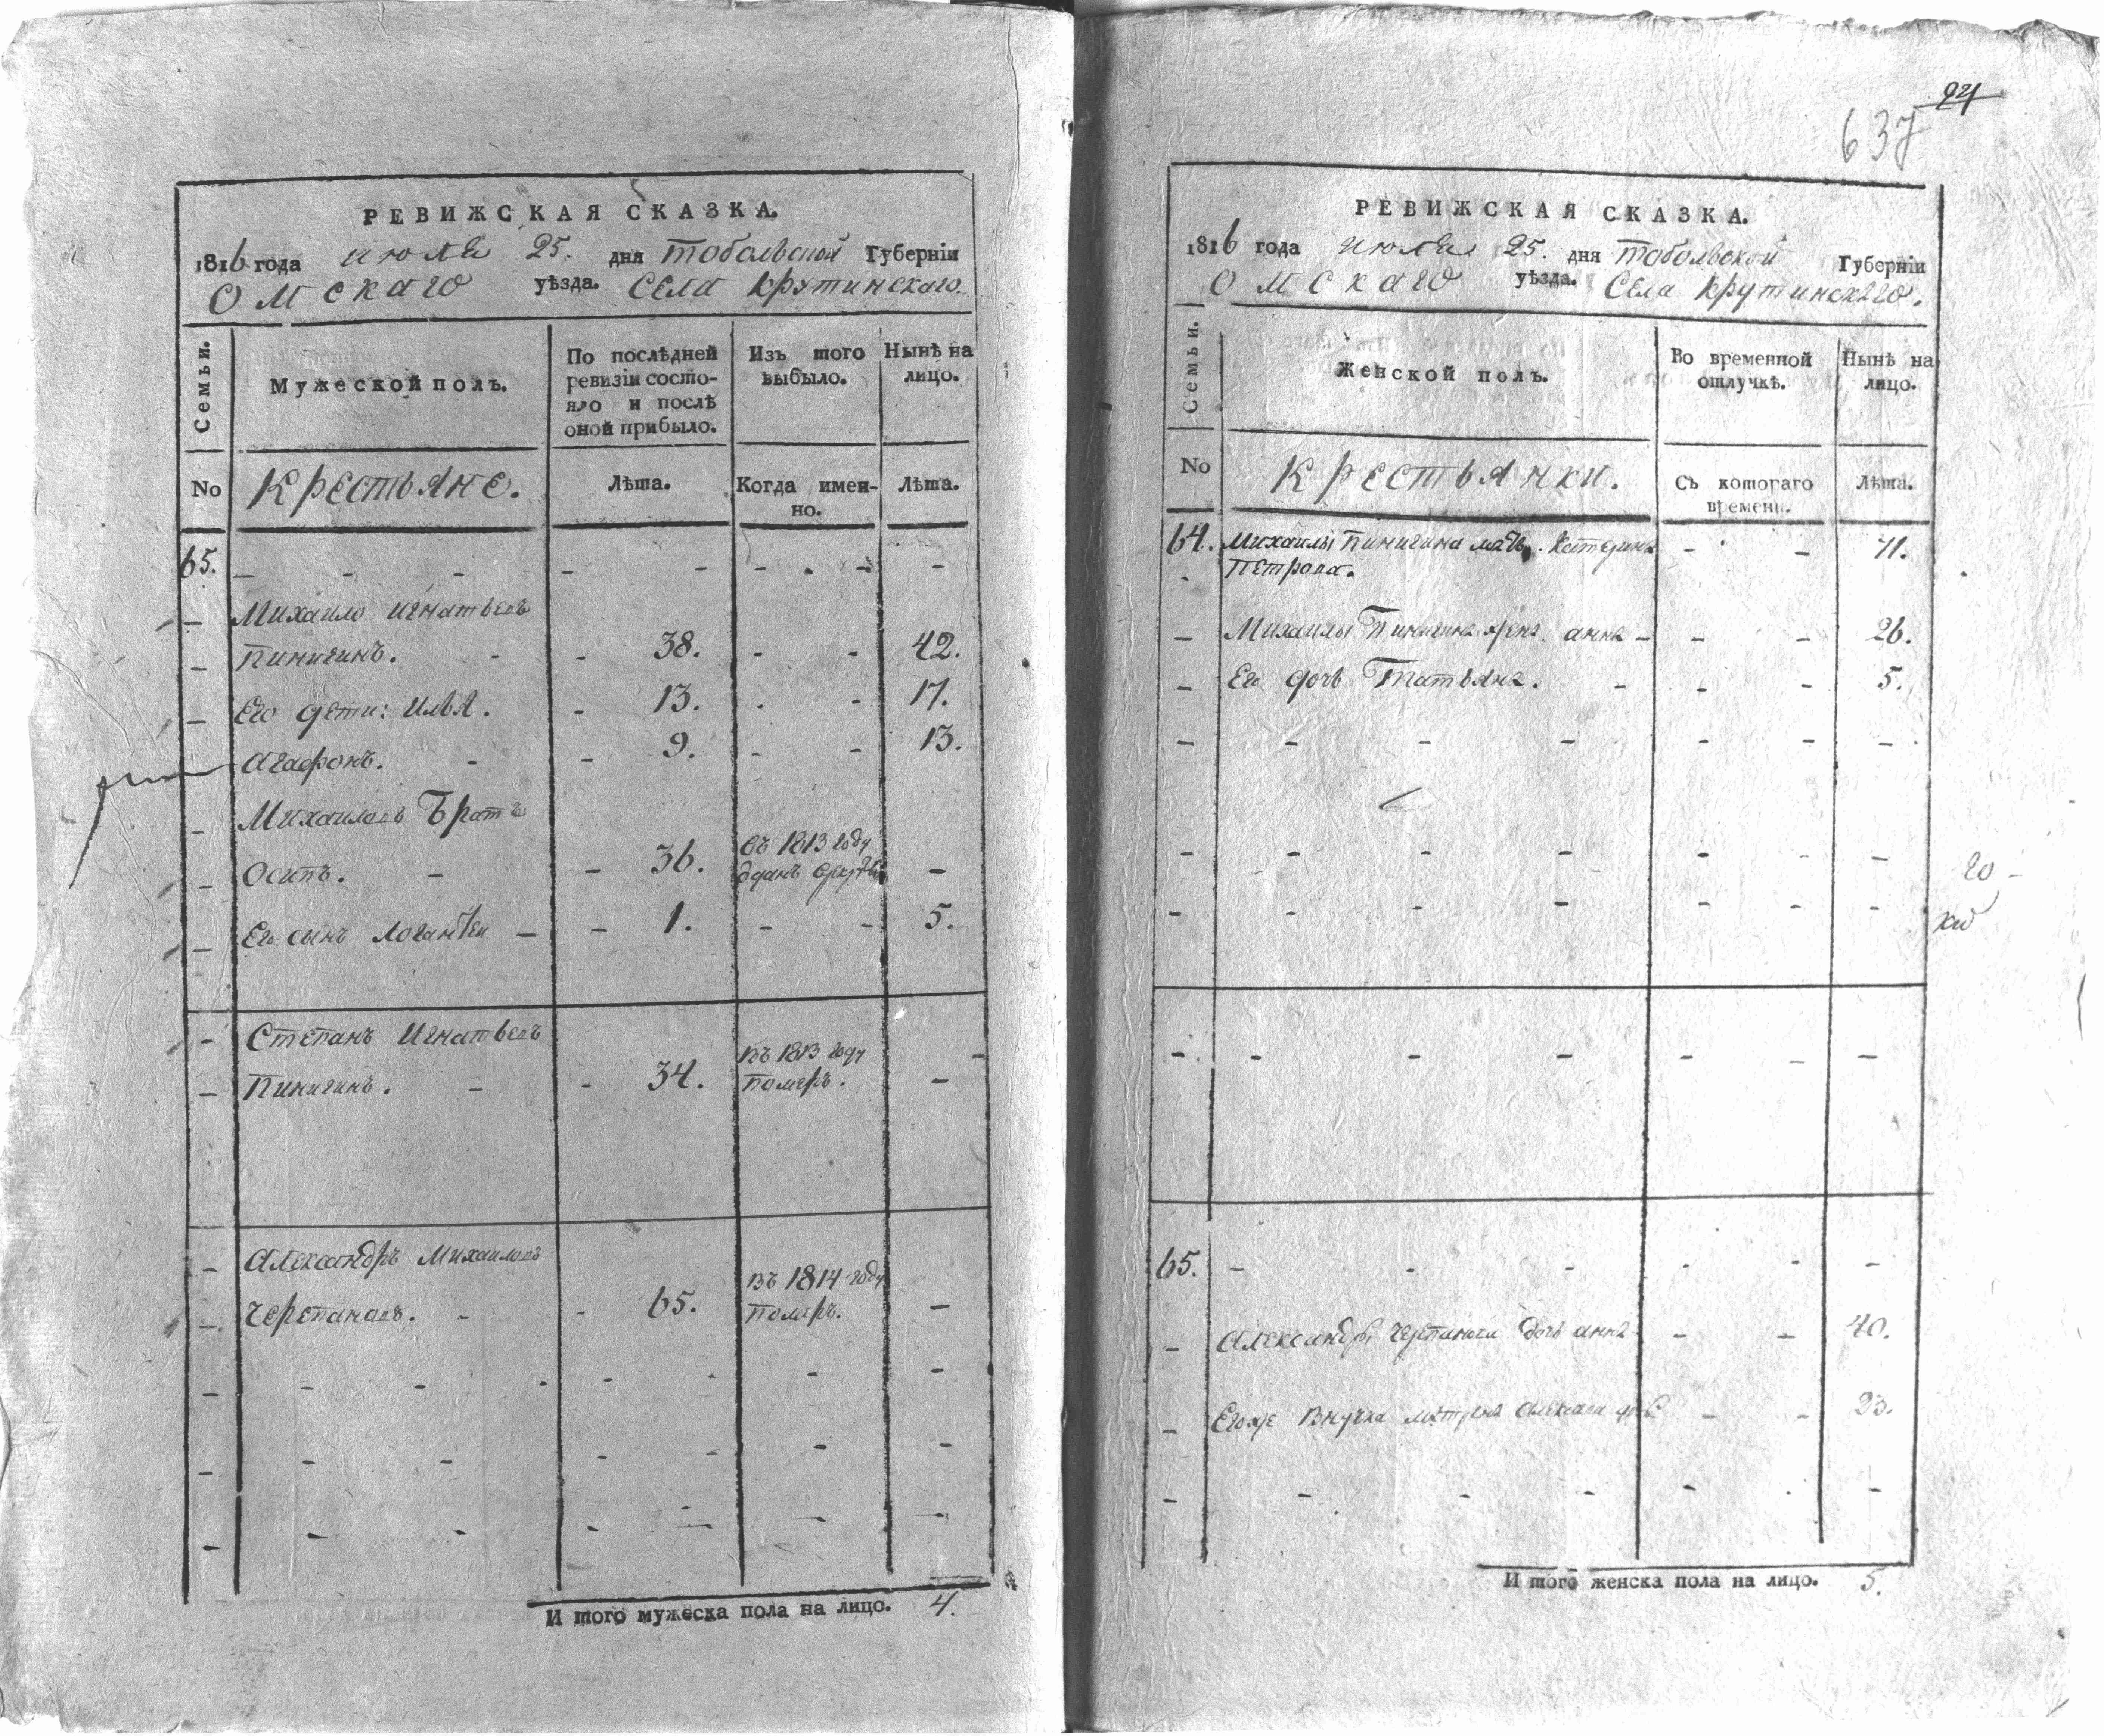 РЕВИЖСКАЯ СКАЗКА.
1816 года июля 25. дня Тобольской Губернiи
Омскаго уѣзда. Села Крутинскаго.
Семьи.
Мужеской полъ.
По послѣдней ревизiи состо-
яло и послѣ
оной прибыло.
Изъ того
выбыло.
Нынѣ на
лицо.
No
Крестьяне.
Лѣта.
Когда имен-
но.
Лѣта.
65.
Михаило Игнатьевъ
Пинигинъ. 38. 42.
Его дети: Илья. 13. 17.
Агафонъ. 9. 13.
Михаиловъ Братъ
Осипъ. 36. въ 1813 году
отданъ
Его сынъ 1. 5.
Степанъ Игнатьевъ
Пинигинъ. 34. въ 1813 году
померъ.
Александръ Михаиловъ
Черепановъ. 65. въ 1814 году
померъ.
И того мужеска пола на лицо. 4.
94
637
РЕВИЖСКАЯ СКАЗКА.
1816 года июля 25. дня Тобольской Губернiи
Омскаго уѣзда. Села Крутинскаго.
Семьи.
Женской полъ.
Во временной
отлучкѣ.
Нынѣ на
лицо.
No
Крестьянки.
Съ котораго
времени.
Лѣта.
64. Михаилы Пинигина мать Катерина 71.
Петрова.
Михаилы Пинигина жена анна 26.
Его дочь Татьяна. 5.
65.
Александра Черепанова дочь анна 40.
Егоже внучка 23.
И того женска пола на лицо. 5.